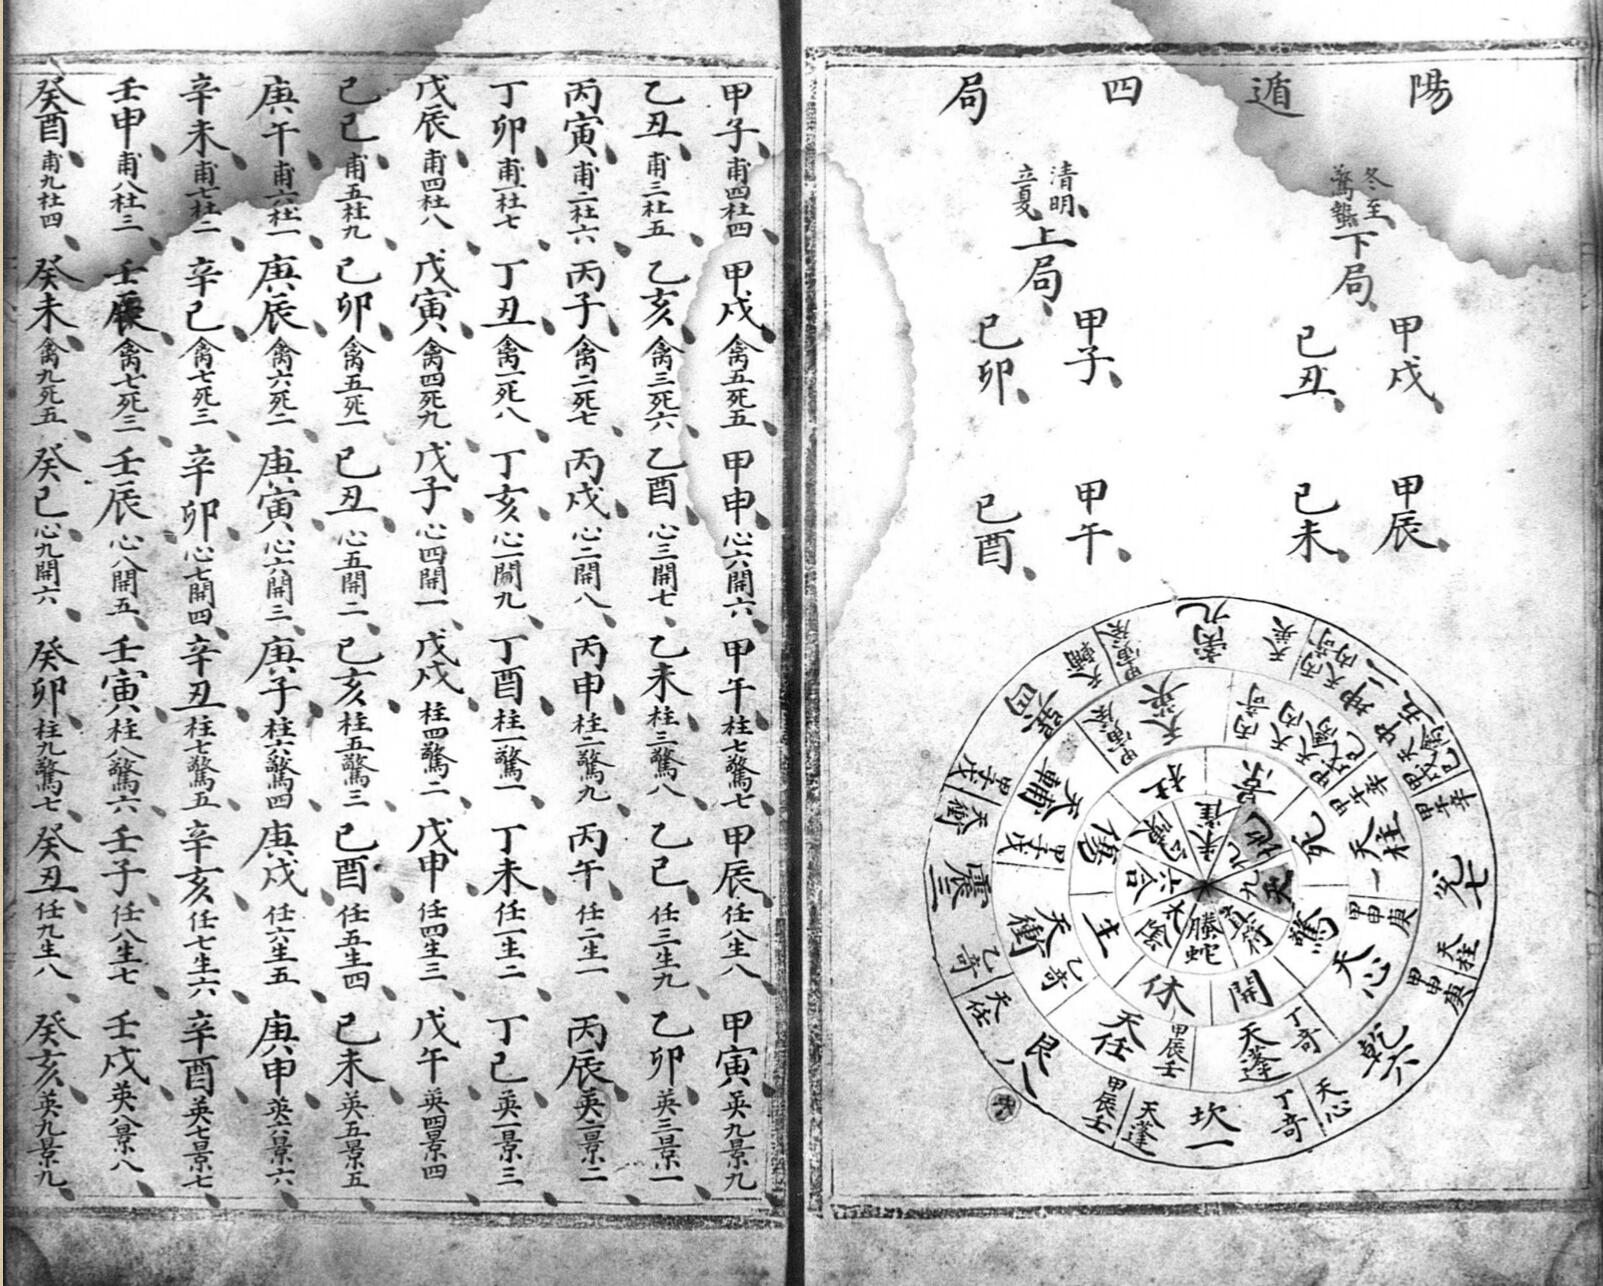 陽遁四局
冬至
驚蟄
下局
甲戌 甲辰
己丑 己未
清明
立夏
上局
甲子 甲午
己卯 己酉
離九
天英
丙奇
天丙
丙奇
坤二
中五
天禽
甲戌己
甲午辛
兌七
天柱
甲申庚
乾六
天心
丁奇
坎一
天蓬
甲辰壬
艮八
天任
乙奇
震三
天衝
甲子戊
巽四
天輔
甲寅癸
天英
丙奇
天丙
天禽
甲戌己
甲午辛
天柱
甲申庚
天心
丁奇
天蓬
甲辰壬
天任
乙奇
天衝
甲子戊
天輔
甲寅癸
景
死
驚
開
休
生
傷
杜
九地
九天
直符
螣蛇
太陰
六合
勾陳
朱雀
甲子甫四杜四 甲戌禽五死五 甲申心六開六 甲午柱七驚七 甲辰任八生八 甲寅英九景九
乙丑甫三杜五 乙亥禽三死六 乙酉心三開七 乙未柱三驚八 乙巳任三生九 乙卯英三景一
丙寅甫二杜六 丙子禽二死七 丙戌心二開八 丙申柱二驚九 丙午任二生一 丙辰英二景二
丁卯甫一杜七 丁丑禽一死八 丁亥心一開九 丁酉柱一驚一 丁未任一生二 丁巳英一景三
戊辰甫四杜八 戊寅禽四死九 戊子心四開一 戊戌柱四驚二 戊申任四生三 戊午英四景四
己巳甫五杜九 己卯禽五死一 己丑心五開二 己亥柱五驚三 己酉任五生四 己未英五景五
庚午甫六杜一 庚辰禽六死二 庚寅心六開三 庚子柱六驚四 庚戌任六生五 庚申英六景六
辛未甫七杜二 辛巳禽七死三 辛卯心七開四 辛丑柱七驚五 辛亥任七生六 辛酉英七景七
壬申甫八杜三 壬禽七死三 壬辰心八開五 壬寅柱八驚六 壬子任八生七 壬戌英八景八
癸酉甫九杜四 癸未禽九死五 癸巳心九開六 癸卯柱九驚七 癸丑任九生八 癸亥英九景九